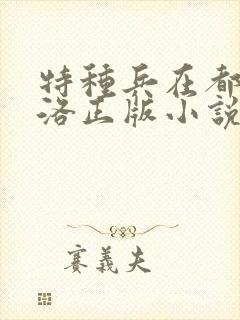 特種兵在都
洛正版小說
賽義夫